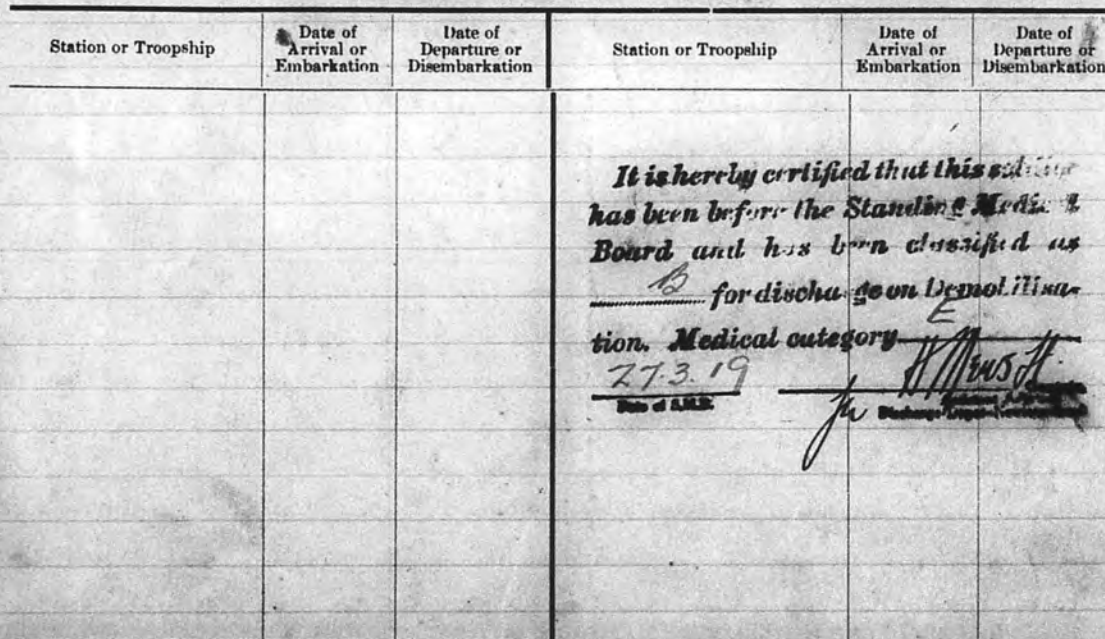 Station or Troopship
Date of
Arrival or
Embarkation
Date of
Departure or
Disembarkation
Station or Troopship
Date of
Arrival or
Embarkation
Date of
Departure or
Disembarkation
It is hereby certified that this
has been before the Standing Medical
Board and has been classified as
B for discharge on Demobilisa-
tion. Medical category E
27.3.19
Date of S.M.B.